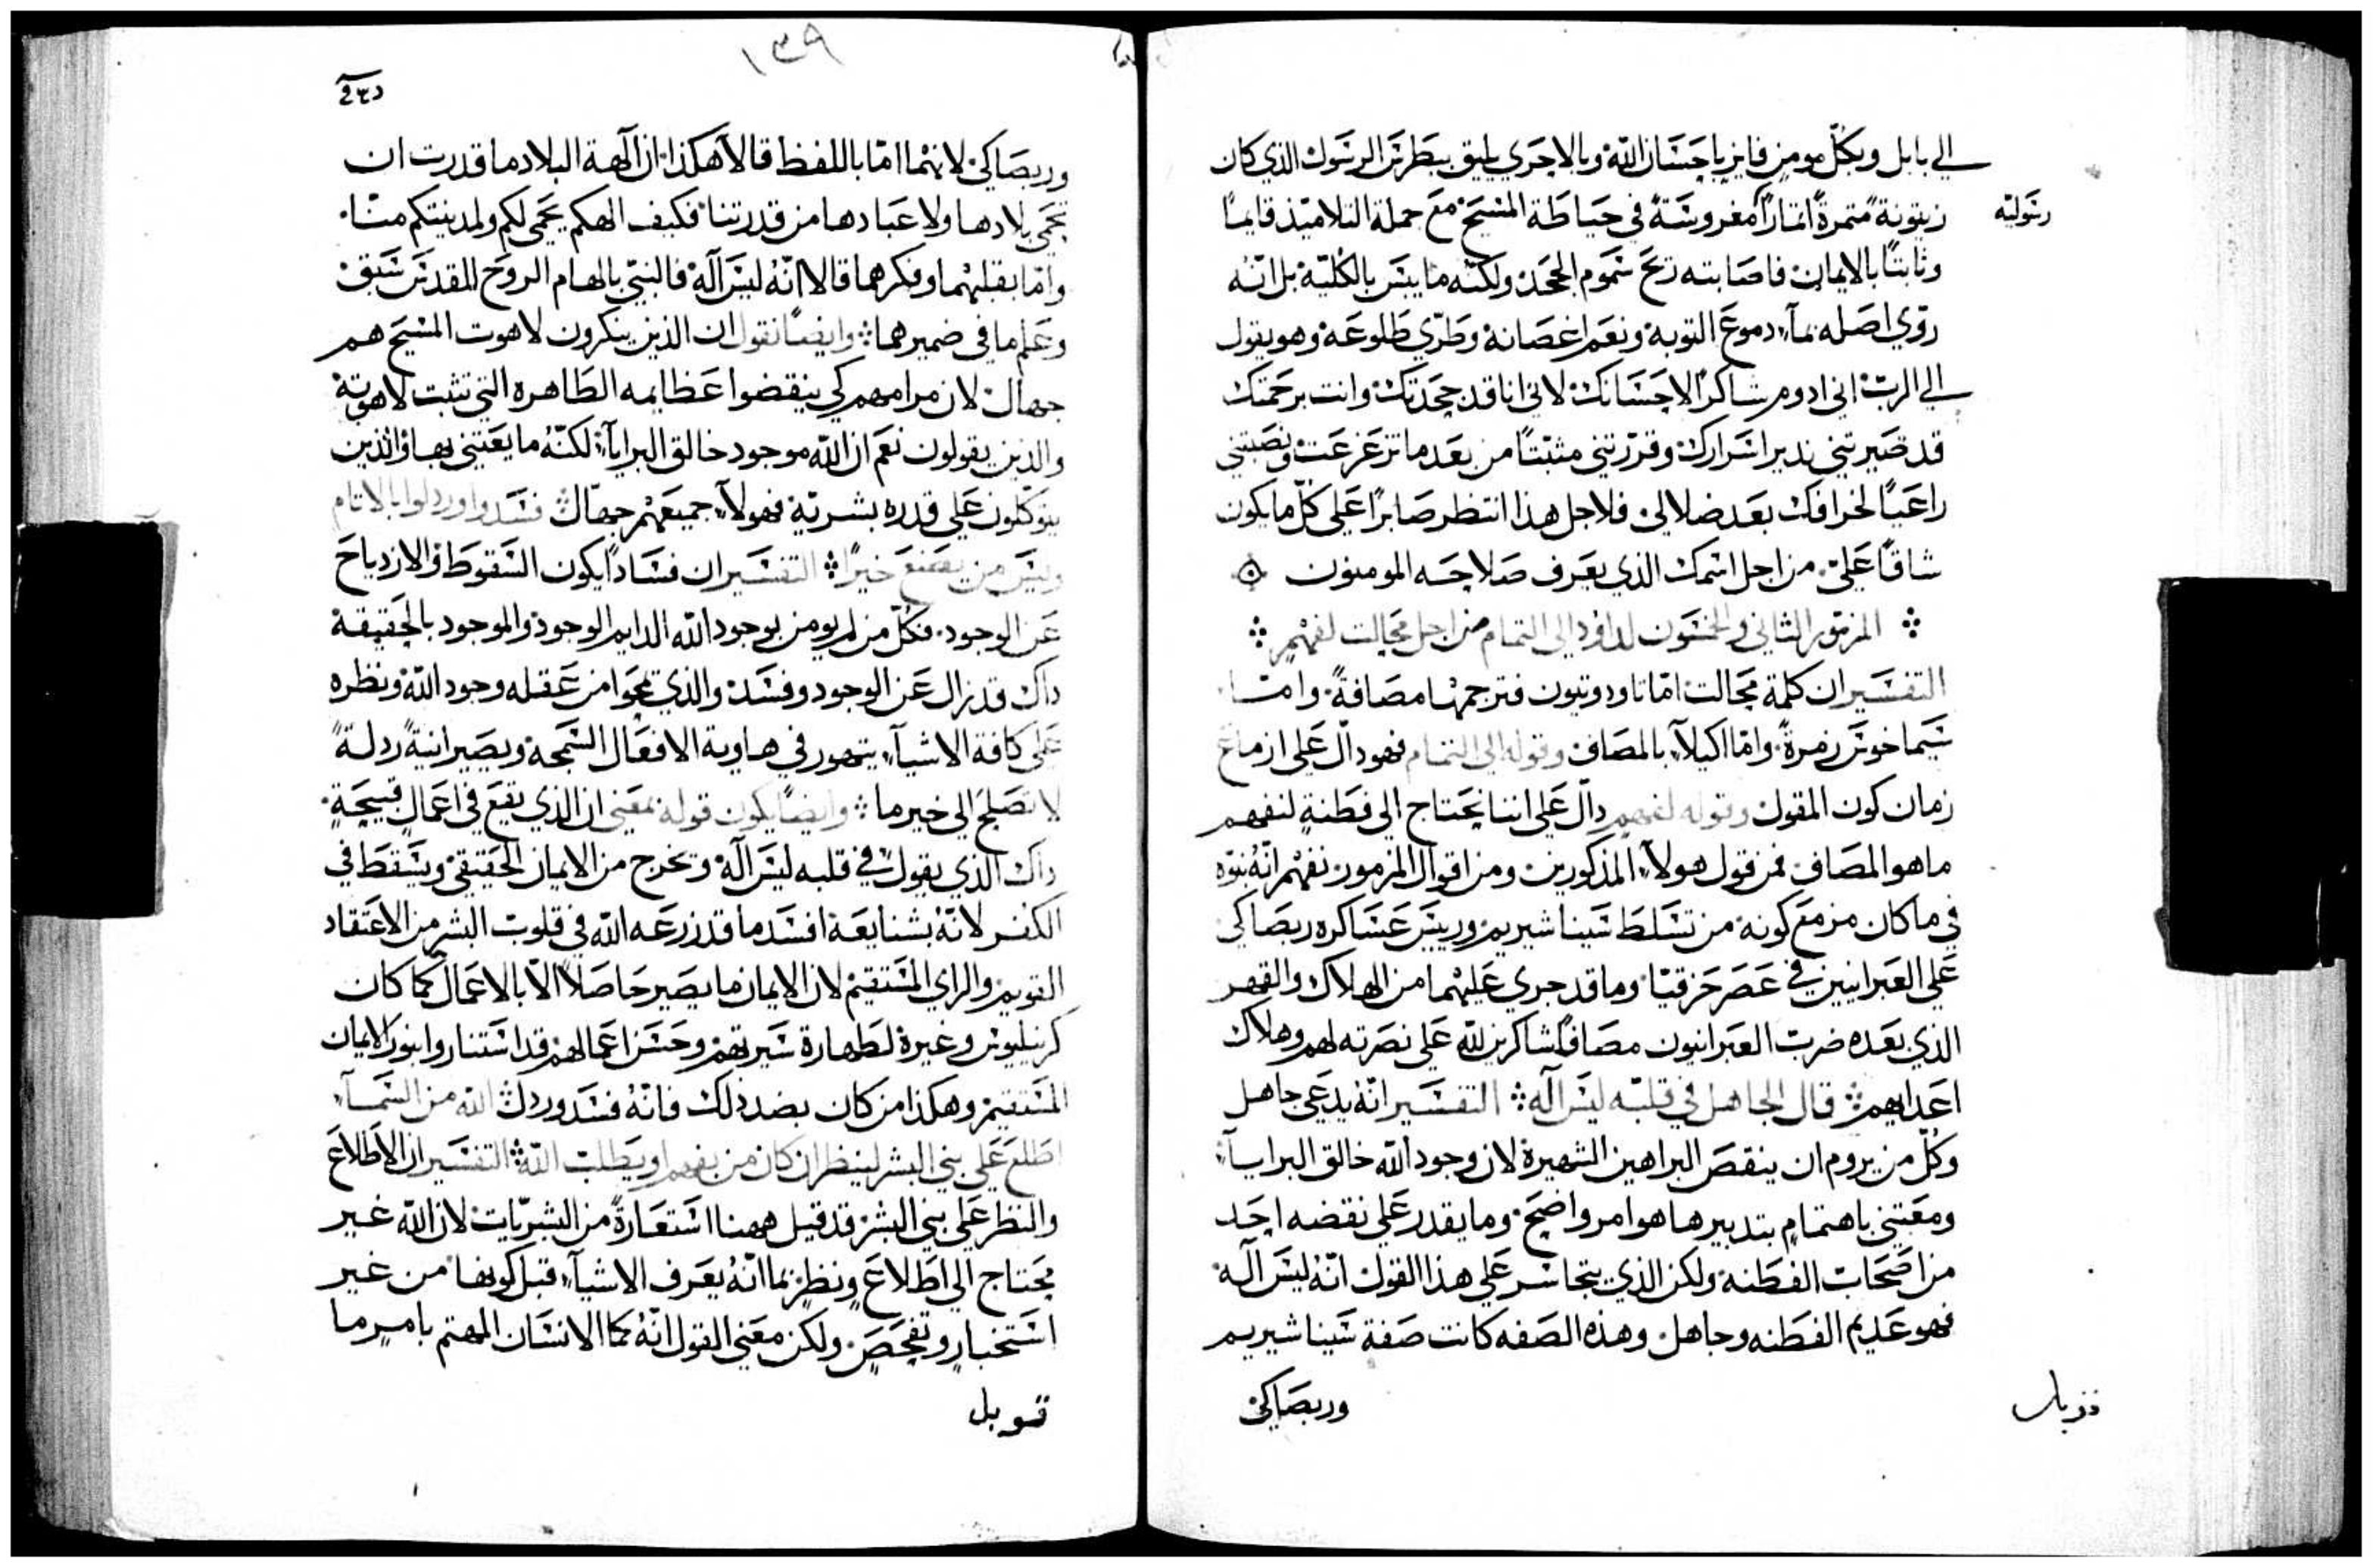 الي بابل وبكلّ مومنٍ فايزٍ باحسان اللّه وبالاحري يليق ببطرس الرسول الذي كان
رسوليّه
زيتونةً متمرةً اتمارًا مغروسةً في حياطة المسيح مع جملة التلاميذ قايمًا
وثابتًا بالايمان فاصابته ريح سموم الجحد ولكنّه ما يبس بالكليّة بل انّه
روّي اصله بمآء دموع التوبة ونعم اغصانه وطرّي طلوعه وهو يقول
الي الربّ اني ادوم شاكرًا لاحسانك لاني انا قد جحدتك وانت برحمتك
قد صيرتني ندير اسرارك وقرّرتني مثبّتًا من بعد ما تزعزعت ونصبتني
راعيًا لخرافك بعد ضلالي فلاجل هذا انتظر صابرًا علي كلّ ما يكون
شاقًا عليّ من اجل اسمك الذي يعرف صلاحه المومنون
المزمور الثاني والخمسون لداوود الي التمام من اجل محالت لفهمٍ
التفسير ان كلمة محالت امّا تاودوتيون فترجمها مصافةً وامّا
سيماخوس زمرةً وامّا اكيلآء بالمصاف وقوله الي التمام فهو دالّ علي ازماع
زمان كون المقول وقوله لفهمٍ دالّ علي اننا نحتاج الي فطنةٍ لنفهم
ما هو المصاف فمن قول هولآء المذكورين ومن اقوال المزمور نفهم انّه نبوّه
في ما كان مزمع كونه من تسلط سيناشيريم ورييس عساكره ربصاكي
علي العبرانيين في عصر حزقيّا وما قد جري عليهما من الهلاك والقهر
الذي بعده ضرب العبرانيون مصافًا شاكرين للّه علي نصرته لهم وهلاك
اعدايهم قال الجاهل في قلبه ليس آله التفسير انّه يدعي جاهل
وكلّ من يروم ان ينقص البراهين الشهيرة لان وجود اللّه خالق البرايآء
ومعتني باهتمامٍ بتدبيرها هو امر واضح وما يقدر علي نقضه احد
من اصحات الفطنه ولكن الذي يتجاسر علي هذا القول انّه ليس آله
فهو عديم الفطنه وجاهل وهذه الصفه كانت صفة سيناشيريم
وربصاكي
١٣٩
وربصاكي لانهما امّا باللفظ قالا هكذا ان آلهة البلاد ما قدرت ان
تحمي بلادها ولا عبادها من قدرتنا فكيف الهكم يحمي لكم ولمدينتكم منّا
وامّا بقلبهما وفكرهما قالا انّه ليس آله فالنبيّ بالهام الروح المقدس سبق
وعلم ما في ضميرهما وايضًا نقول ان الذين ينكرون لاهوت المسيح هم
جهال لان مرامهم كي ينقضوا عظايمه الظاهره التي تثبت لاهوته
والذين يقولون نعم ان اللّه موجود خالق البرايآء لكنّه ما يعتني بها والذين
يتوكلون علي قدره بشريّة فهولآء جميعهم جهّال فسدوا وردلوا بالاتام
وليس من يصنع خيرًا التفسير ان فسادًا يكون السقوط والازدياح
عن الوجود فكلّ من لم يومن بوجود اللّه الدايم الوجود والموجود بالحقيقة
داك قد زال عن الوجود وفسد والذي يمحوا من عقله وجود اللّه ونظره
علي كافة الاشيآء يتهور في هاوية الافعال السمجة ويصير انيةً ردلةً
لا تصلح الي خيرٍ ما وايضًا يكون قوله بمعني ان الذي يقع في اعمالٍ قبيحةٍ
داك الذي يقول في قلبه ليس آله ويخرج من الايمان الحقيقي ويسقط في
الكفر لانّه بشنايعه افسد ما قد زرعه اللّه في قلوب البشر من الاعتقاد
القويم والراي المستقيم لان الايمان ما يصير حاصلًا الّا بالاعمال كما كان
كرنيليوس وغيرة لطهارة سيرتهم وحسن اعمالهم قد استناروا بنور الايمان
المستقيم وهكذا من كان بضد ذلك فانّه فسد وردل اللّه من السمآء
اطلع علي بني البشر لينظر ان كان من يفهم او يطلب اللّه التفسير ان الاطلاع
والنظر علي بني البشر قد قيل ههنا استعارةً من البشريّات لان اللّه غير
محتاج الي اطلاعٍ ونظرٍ بما انّه يعرف الاشيآء قبل كونها من غير
استخبارٍ وتفحصٍ ولكن معني القول انّه كما الانسان المهتم بامرٍ ما
قوبل